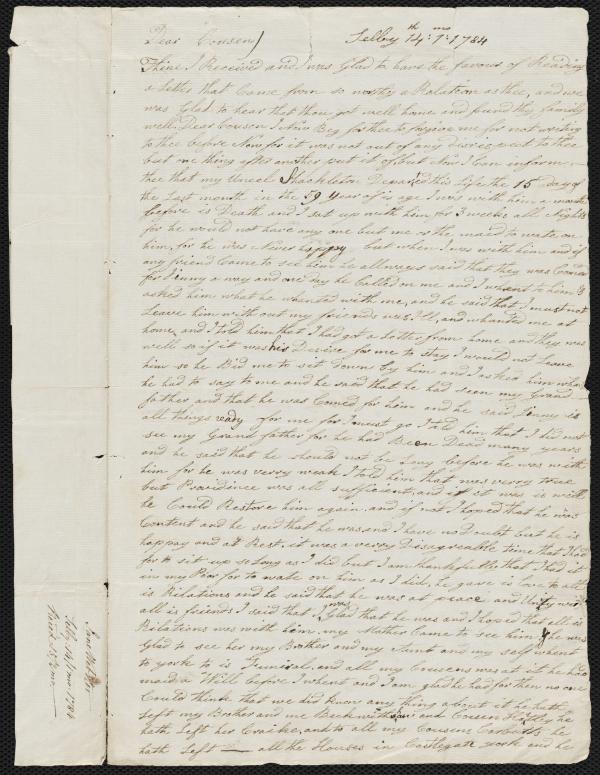 Dear Cousen/ Selby 14th: 1mo: 1784
Thine I Received and I was Glad to have the favour of Reading
a Letter that Came from so worthy a Relation as thee, and we
was Glad to hear that thou got well home and found thy family
well. Dear Cousen I Now Beg for thee to forgive me for not writing
to thee before Now for it was not out of any disrespect to thee
but one thing after another put it of but Now I Can inform
thee that my Uncel Shackleton Departed this Life the 15 day of
the Last month in the 59 year of is age I was with him a month
before is Death and I sat up with him for 3 weeks all Nights
for he would not have any one but me or the maid to wate on
him, for he was Never happy but when I was with him and if
any friend Came to see him he allways said that they was Comes
for Jinny a way and one day he Called on me and I whent to him &
asked him what he whanted with me, and he said that I must not
Leave him with out my friends was Ill, and whanted me at
home and I told him that I had got a Letter from home and they was
well so if it was his Desire for me to Stay I would not Leave
him so he Bid me to sit down by him and I asked him what
he had to say to me and he said that he had seen my Grand
father and that he was Comed for him and he said Jinny is
all things ready for me for I must go I told him that I did not
see my Grandfather for he had Been Dead many years
and he said that he should not be Long before he was with
him for he was verry weak I told him that was verry true
but Providence was all sufficient, and if it was is will
he Could Restore him again, and if not I hoped that he was
Content and he said that he was, and I have no Doubt but he is
happay and at Rest, it was a verry Disagreable time that I had
for to sit up so long as I did but I am thankefull that I had it
in my Power for to wate on him as I did, he gave is love to all
is Relations and he said that he was at peace and Unity with
all is friends I said that I was Glad that he was and I hoped that all is
Relations was with him, my Mother Came to see him & he was
Glad to see her my Brother and my Aunt and my self whent
to york to is Funiral, and all my Cousens was at it he had
maid a Will before I whent and I am glad he had for then no one
Could think that we did know any thing about it he hath
Left my Brother and me Beckwithshaw and Cousen he
hath Left her Craike, and to all my Cousens he
hath Left — all the Houses in Castlegate york and he
Selby 14/1 mo 1784